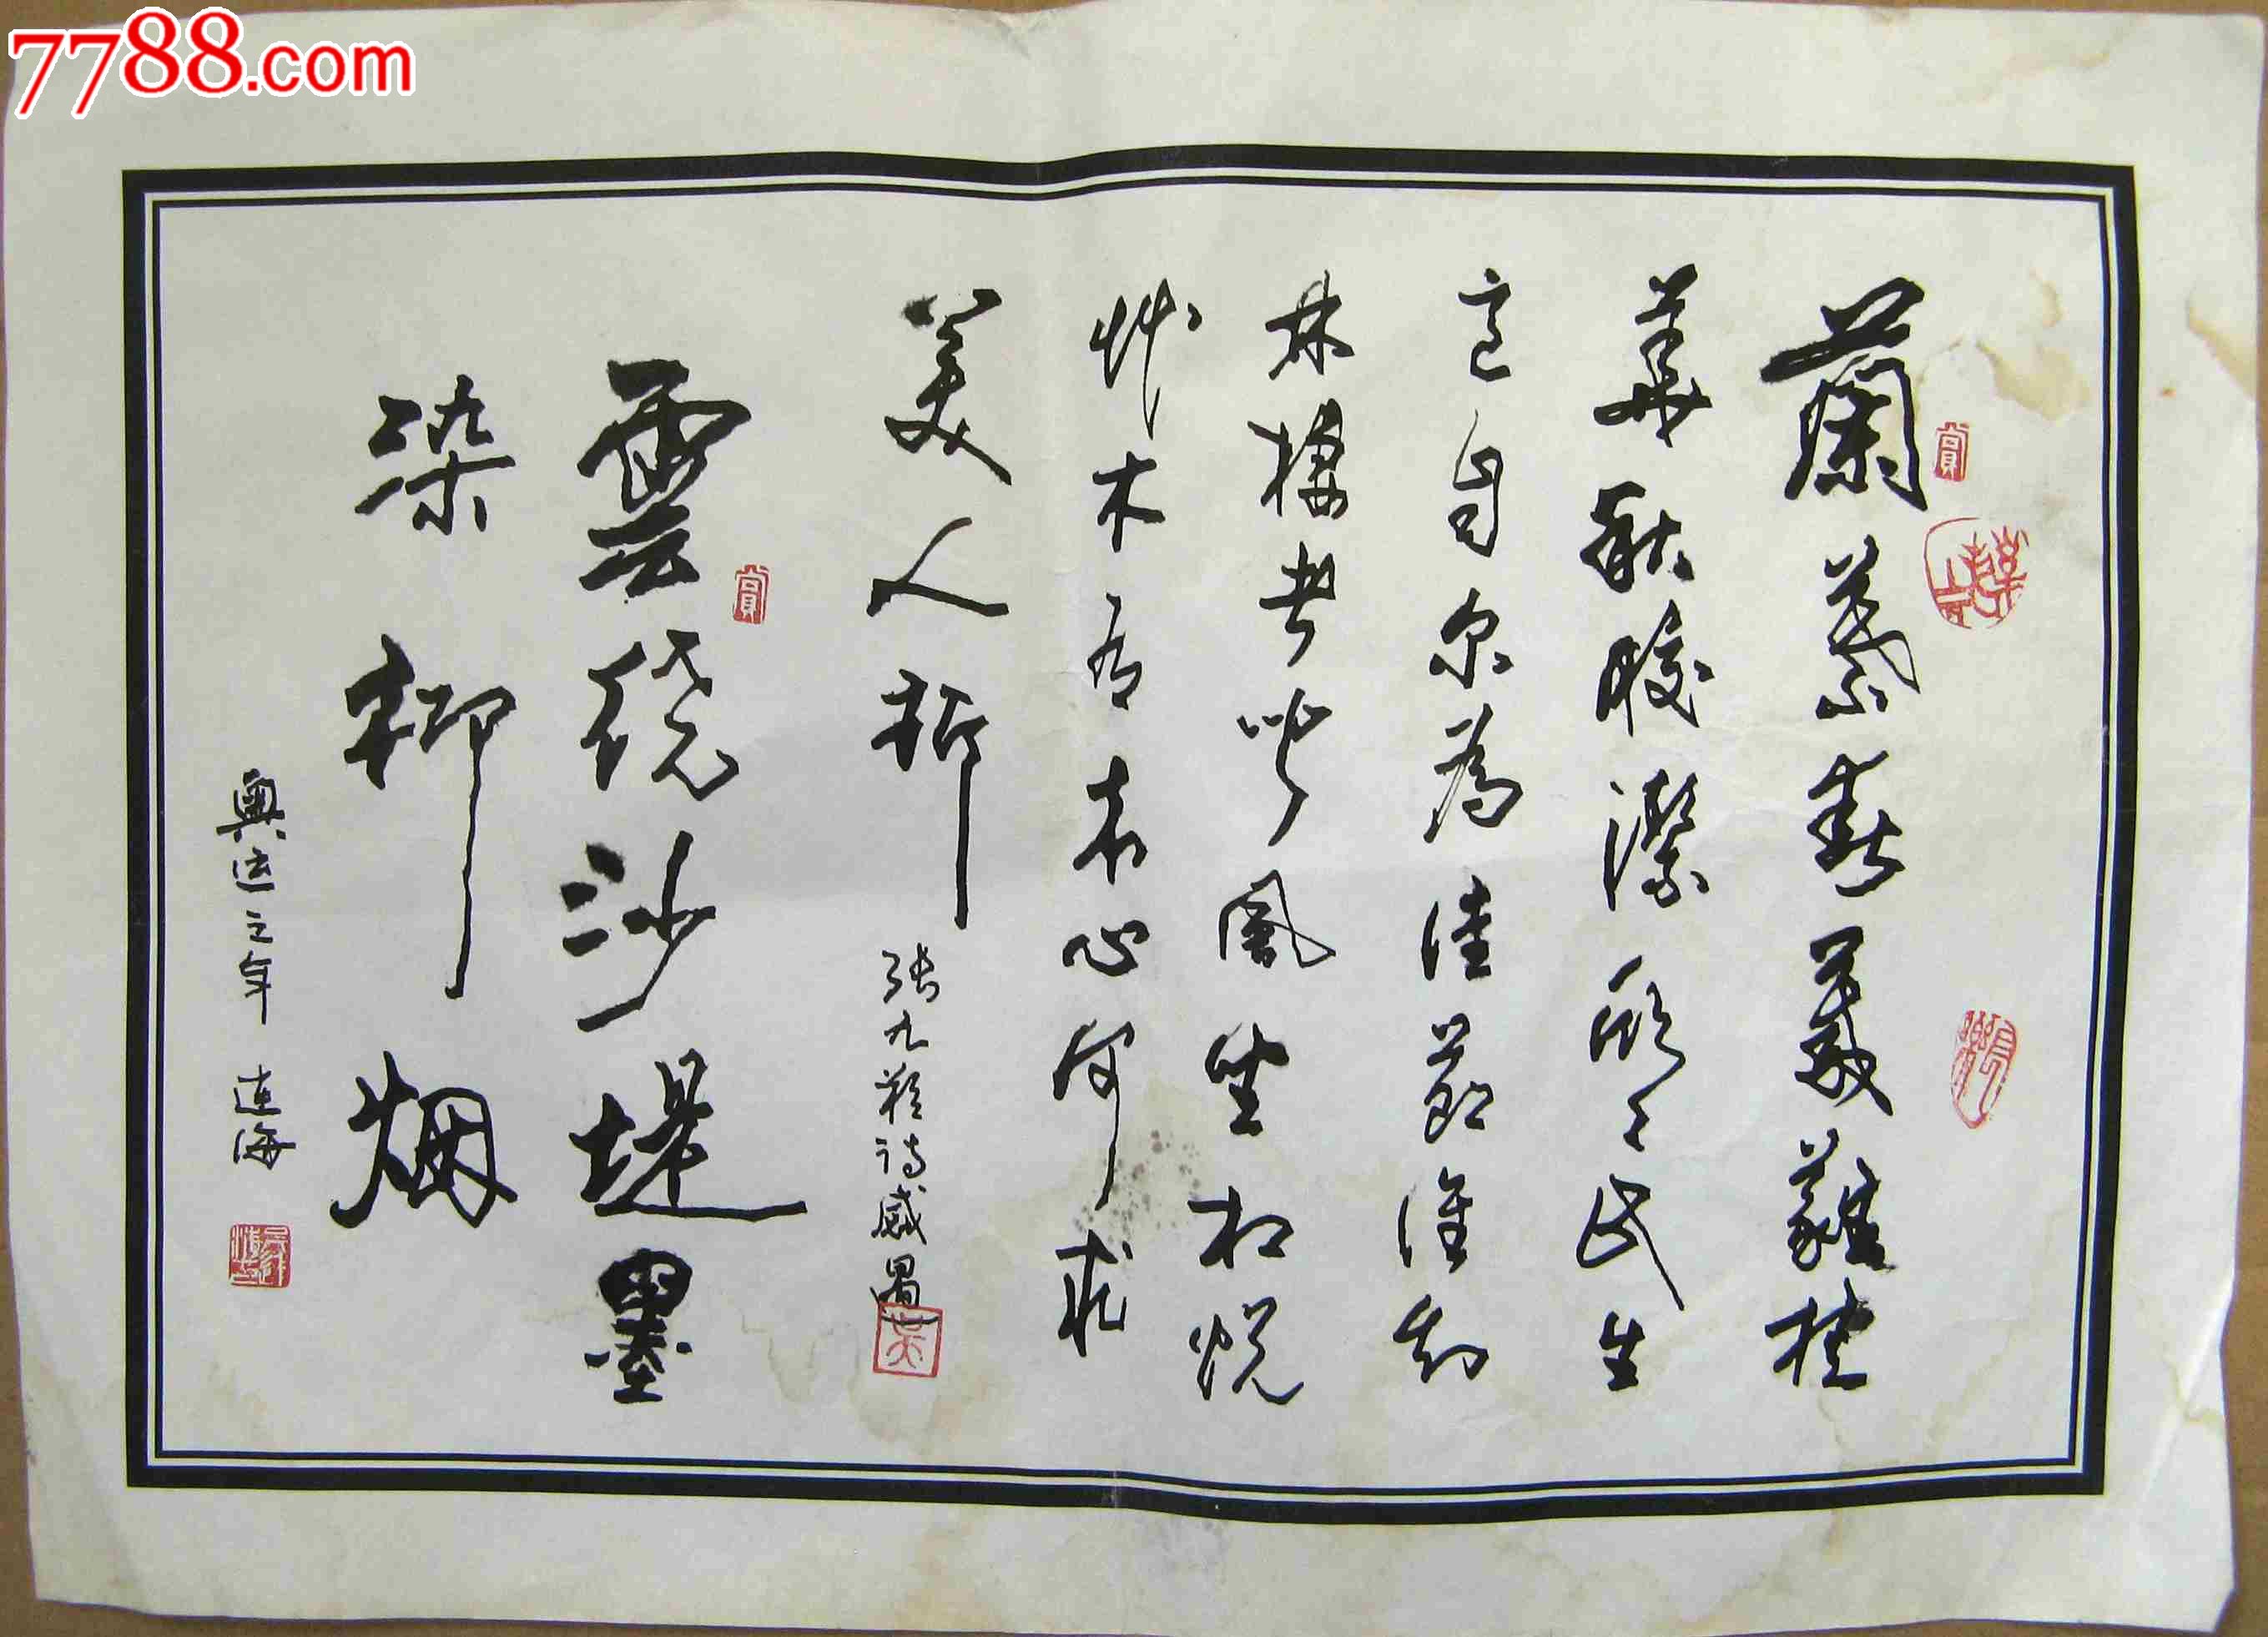 7788.com
蘭葉春葳蕤桂
華秋皎潔欣々此生
意自尔為佳節誰知
林棲者聞風坐相悅
艸木有本心何求
美人折
張九齡詩感遇
雲绕沙堤墨
染柳烟
奥运之年 连海
賞
賞